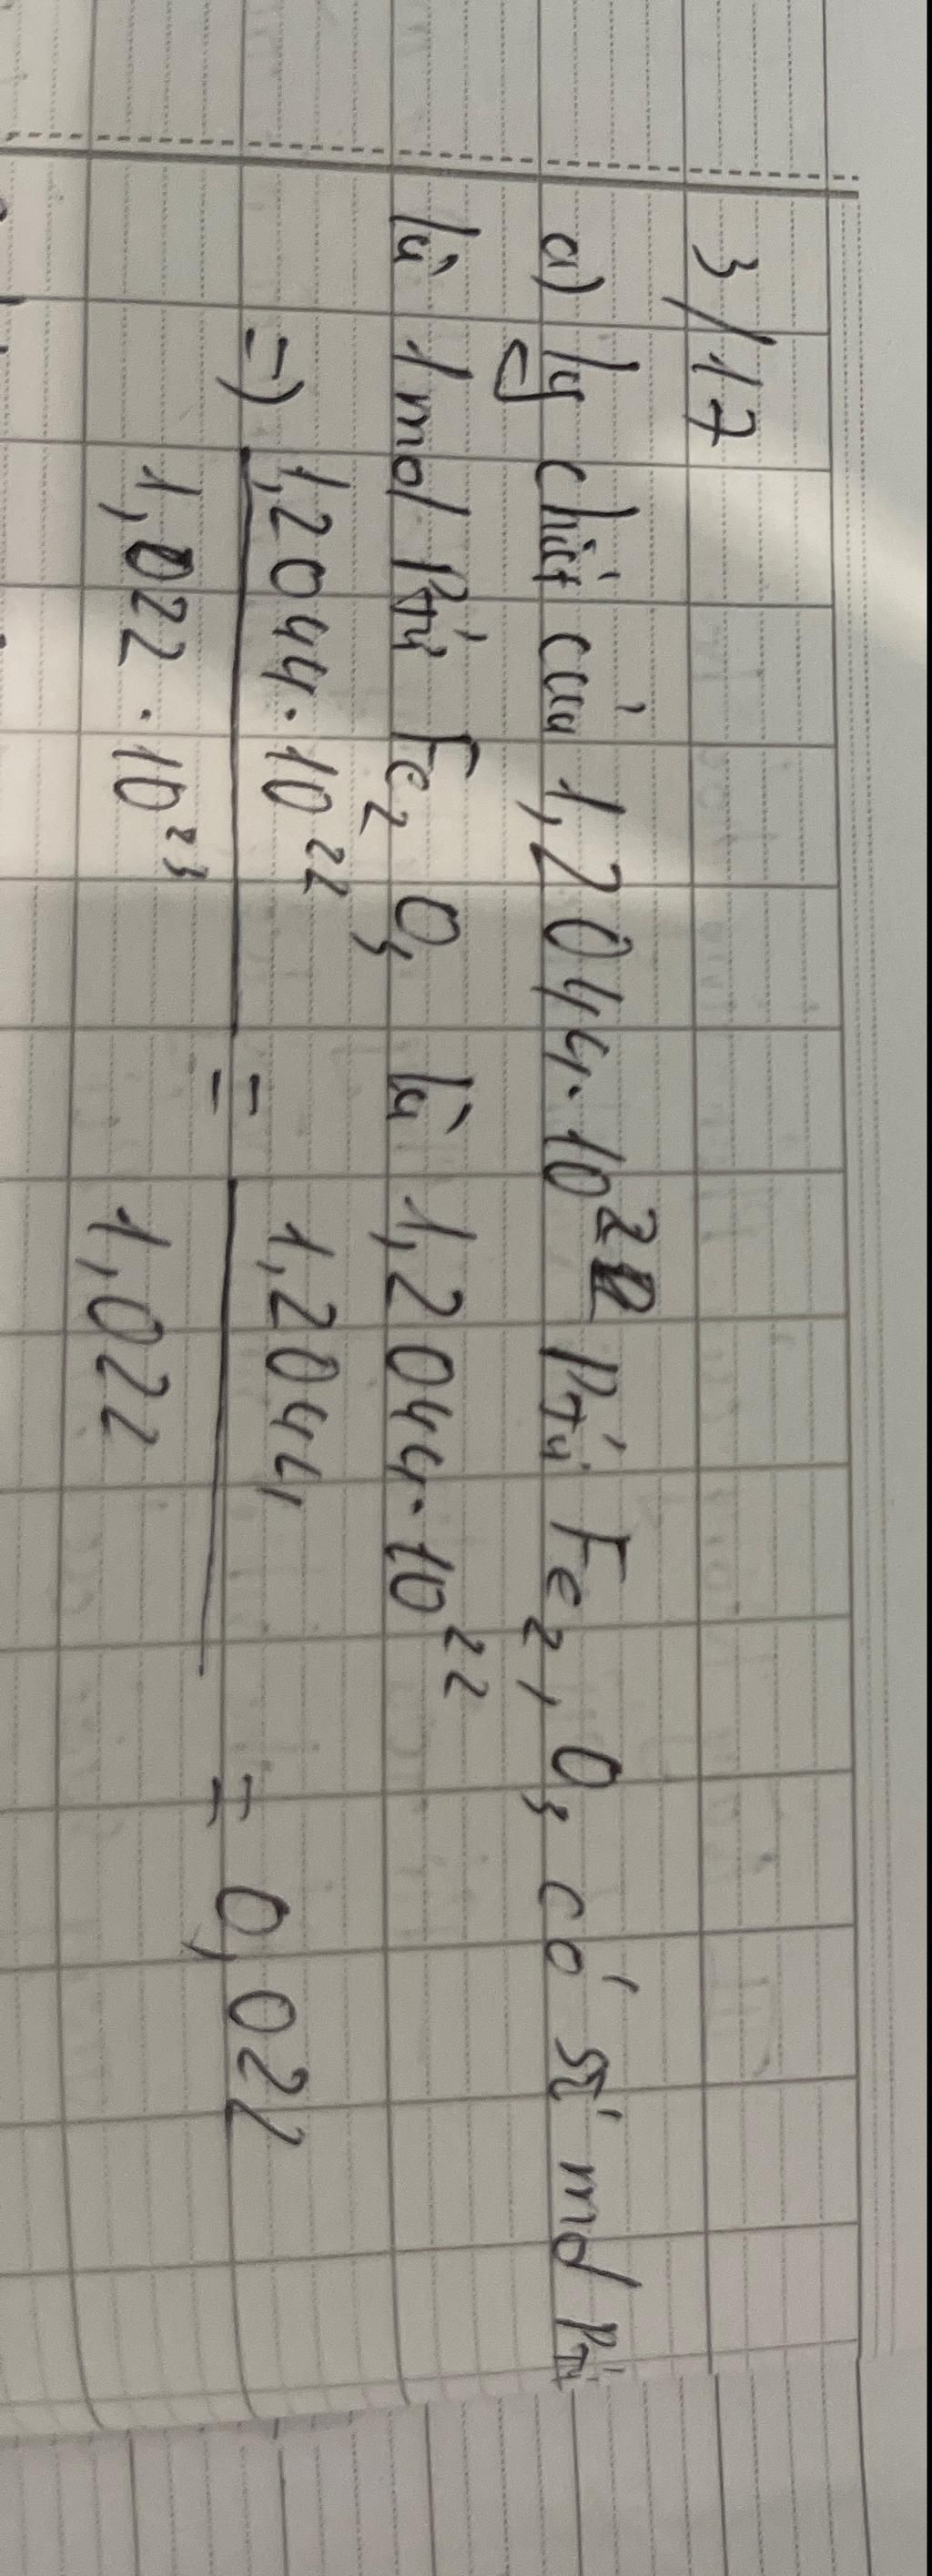 3/17
a) lg chất của 1,2044.10²² Ptử Fe₂, O₃ có số mol Ptử
là 1 mol Ptử Fe₂ O₃ là 1,2044.10²²
=) 1,2044.10²² / 1,022.10²³ = 1,2044 / 1,022 = 0,02